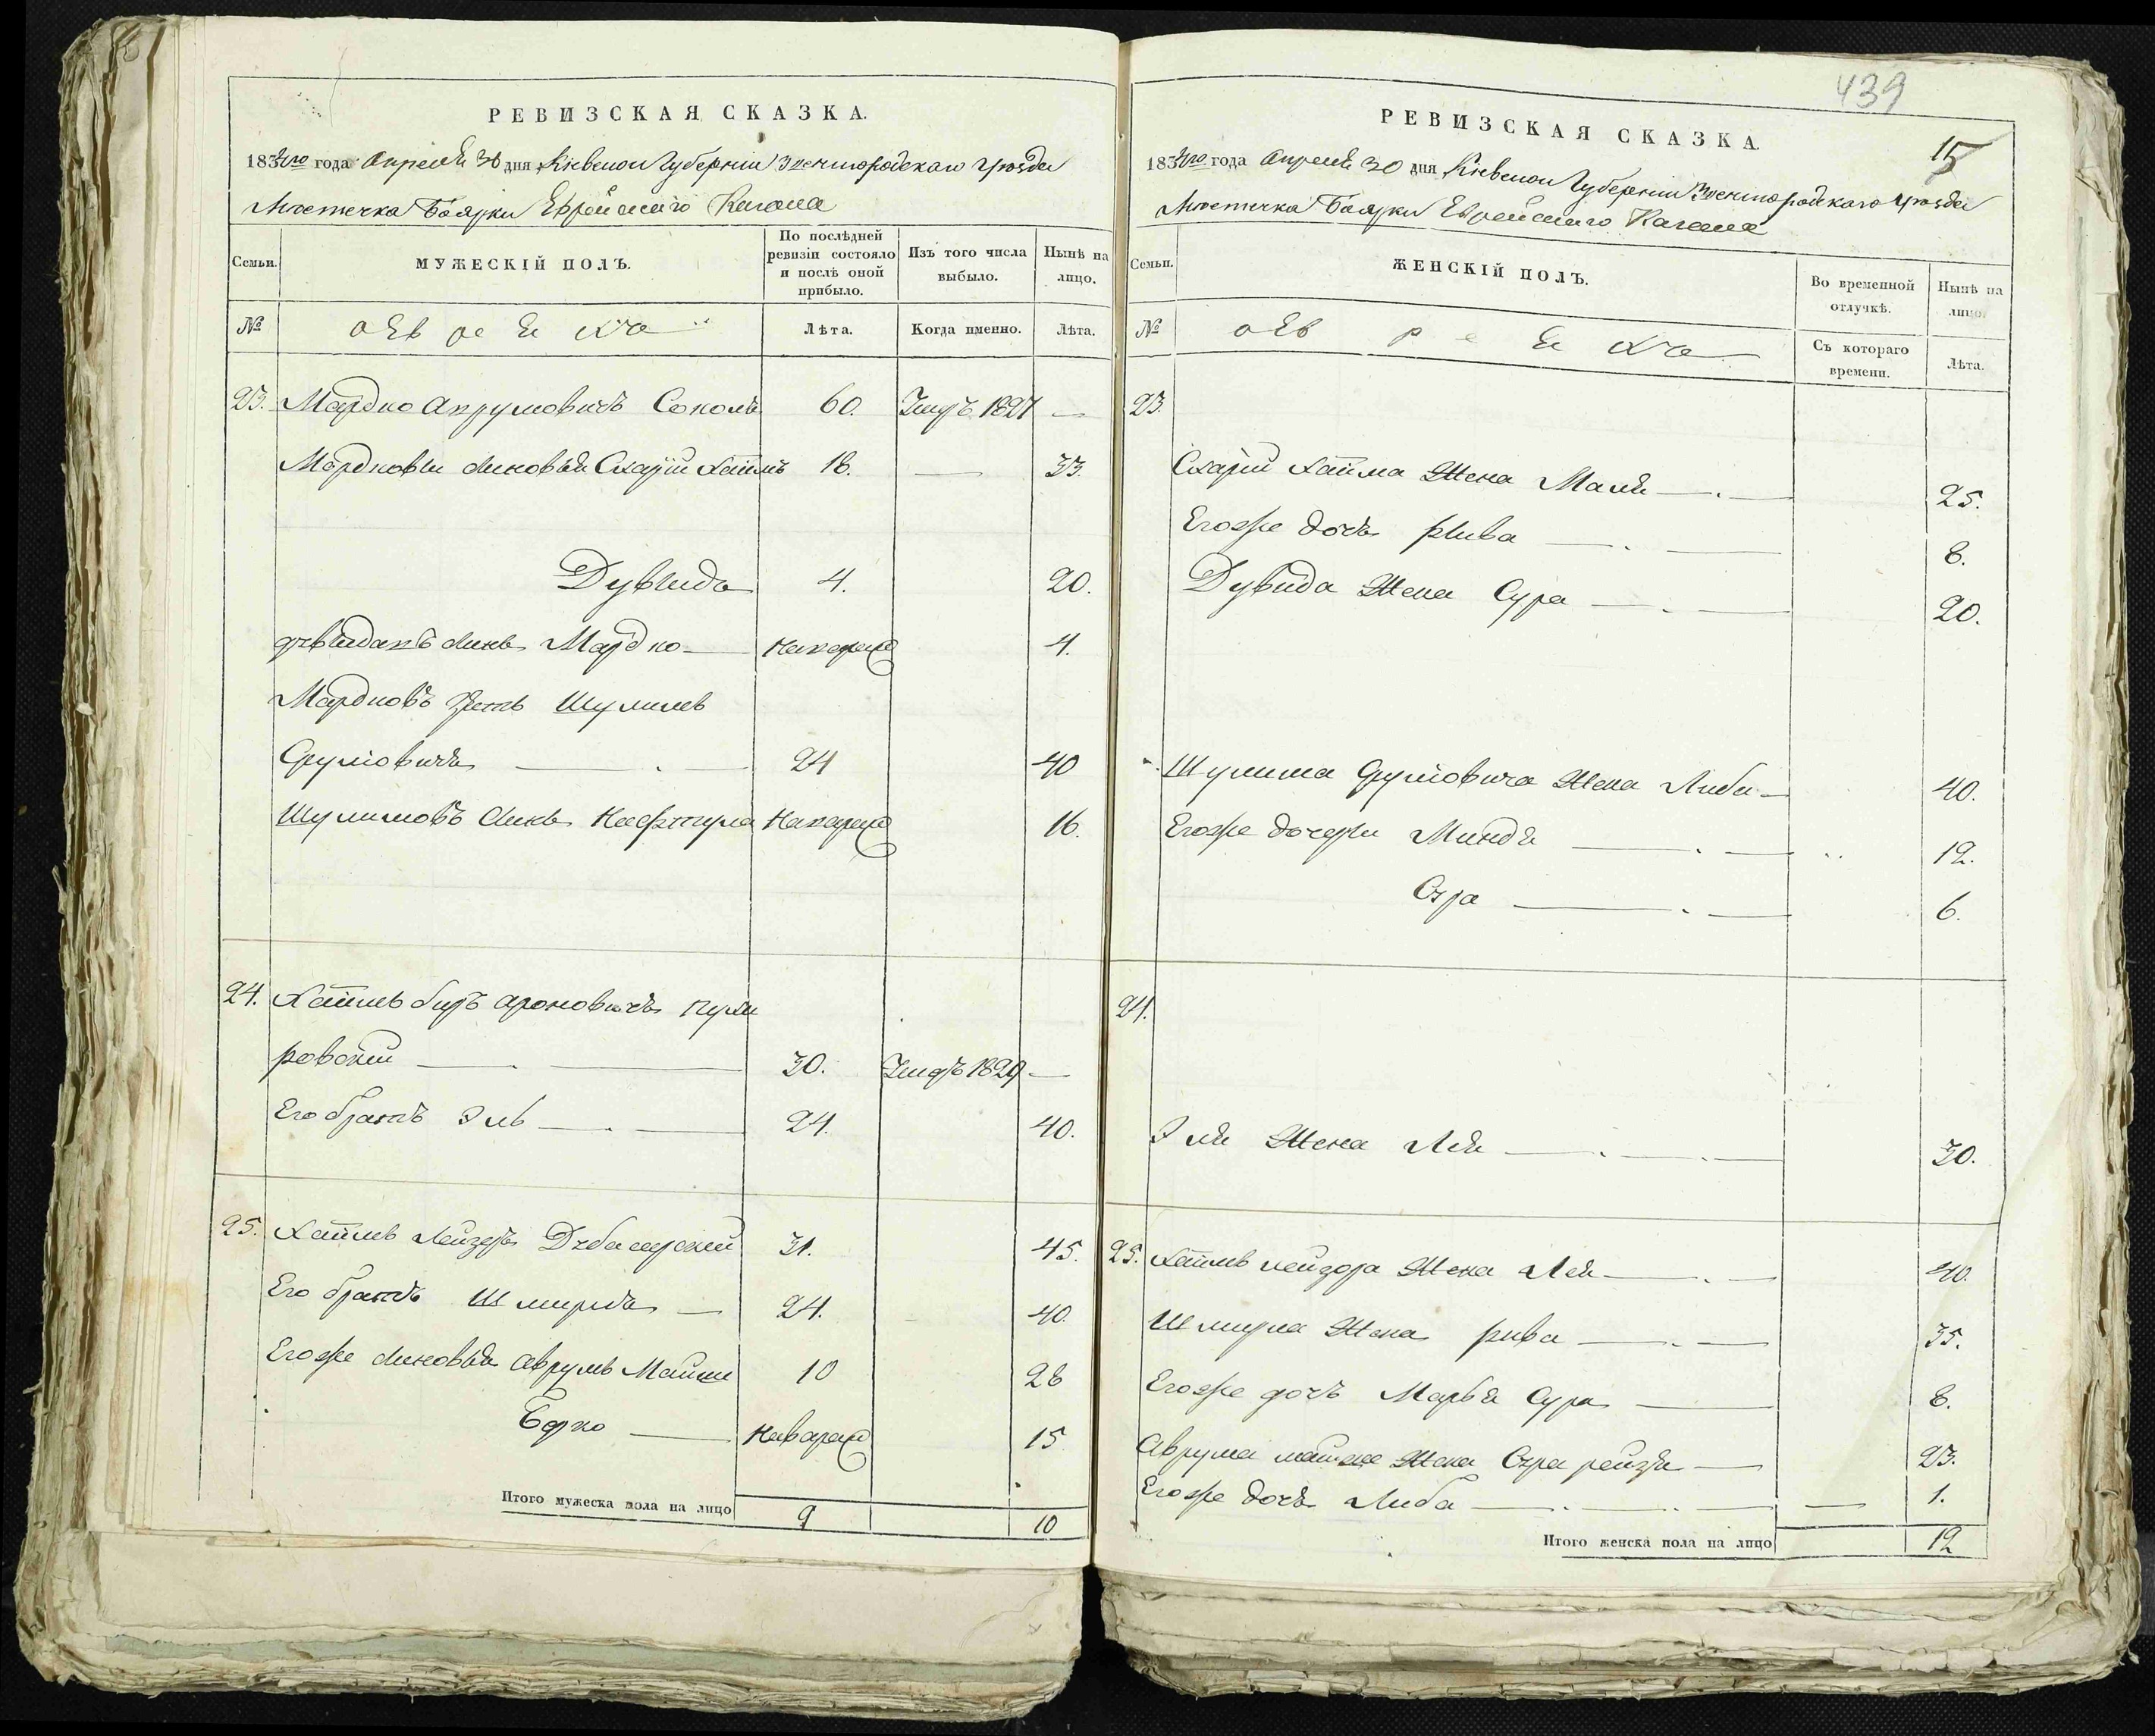 РЕВИЗСКАЯ СКАЗКА.
1834го года Апреля 30 дня Кіевской Губерніи Звенигородскаго уѣзда
Местечка Боярки Еврейскаго Кагала
Семьи.
МУЖЕСКІЙ ПОЛЪ.
По послѣдней ревизіи состояло и послѣ оной прибыло.
Изъ того числа выбыло.
Нынѣ на лицо.
№
Евреи
Лѣта.
Когда именно.
Лѣта.
23. Мардко Соколъ 60. 1827 —
Мардковы сыновья Хаимъ 18. — 33.
Дувидъ 4. 20.
сынъ Мардко — 4.
Мардковъ зять Шулимъ
Сруліовичъ — 24 40
Шулимовъ сынъ Нафтула 16.
24. Хаимъ Ароновичъ
ровскій — 30. 1829 —
Его братъ Эль — 24. 40.
25. Хаимъ Лейзеръ 31. 45.
Его братъ Шмуль — 24. 40.
Егоже сыновья Аврумъ 10 28
— 15
Итого мужеска пола на лицо 9 10
439
15
РЕВИЗСКАЯ СКАЗКА.
1834го года Апреля 30 дня Кіевской Губерніи Звенигородскаго уѣзда
Местечка Боярки Еврейскаго Кагала
Семьи.
ЖЕНСКІЙ ПОЛЪ.
Во временной отлучкѣ.
Нынѣ на лицо.
№
Евреи
Съ котораго времени.
Лѣта.
23.
Хаима жена Маля — 25.
Егоже дочь Рива — 8.
Дувида жена Сура — 20.
Шулима Сруліовича жена Либа — 40.
Егоже дочери Миндя — 12.
Сура — 6.
24.
Эля жена Лея — 30.
25. Хаимъ Лейзора жена Лея — 40.
жена Рива — 35.
Егоже дочь Марья Сура — 8.
Аврума жена Сура Рейзя — 23.
Егоже дочь Либа — 1.
Итого женска пола на лицо 12